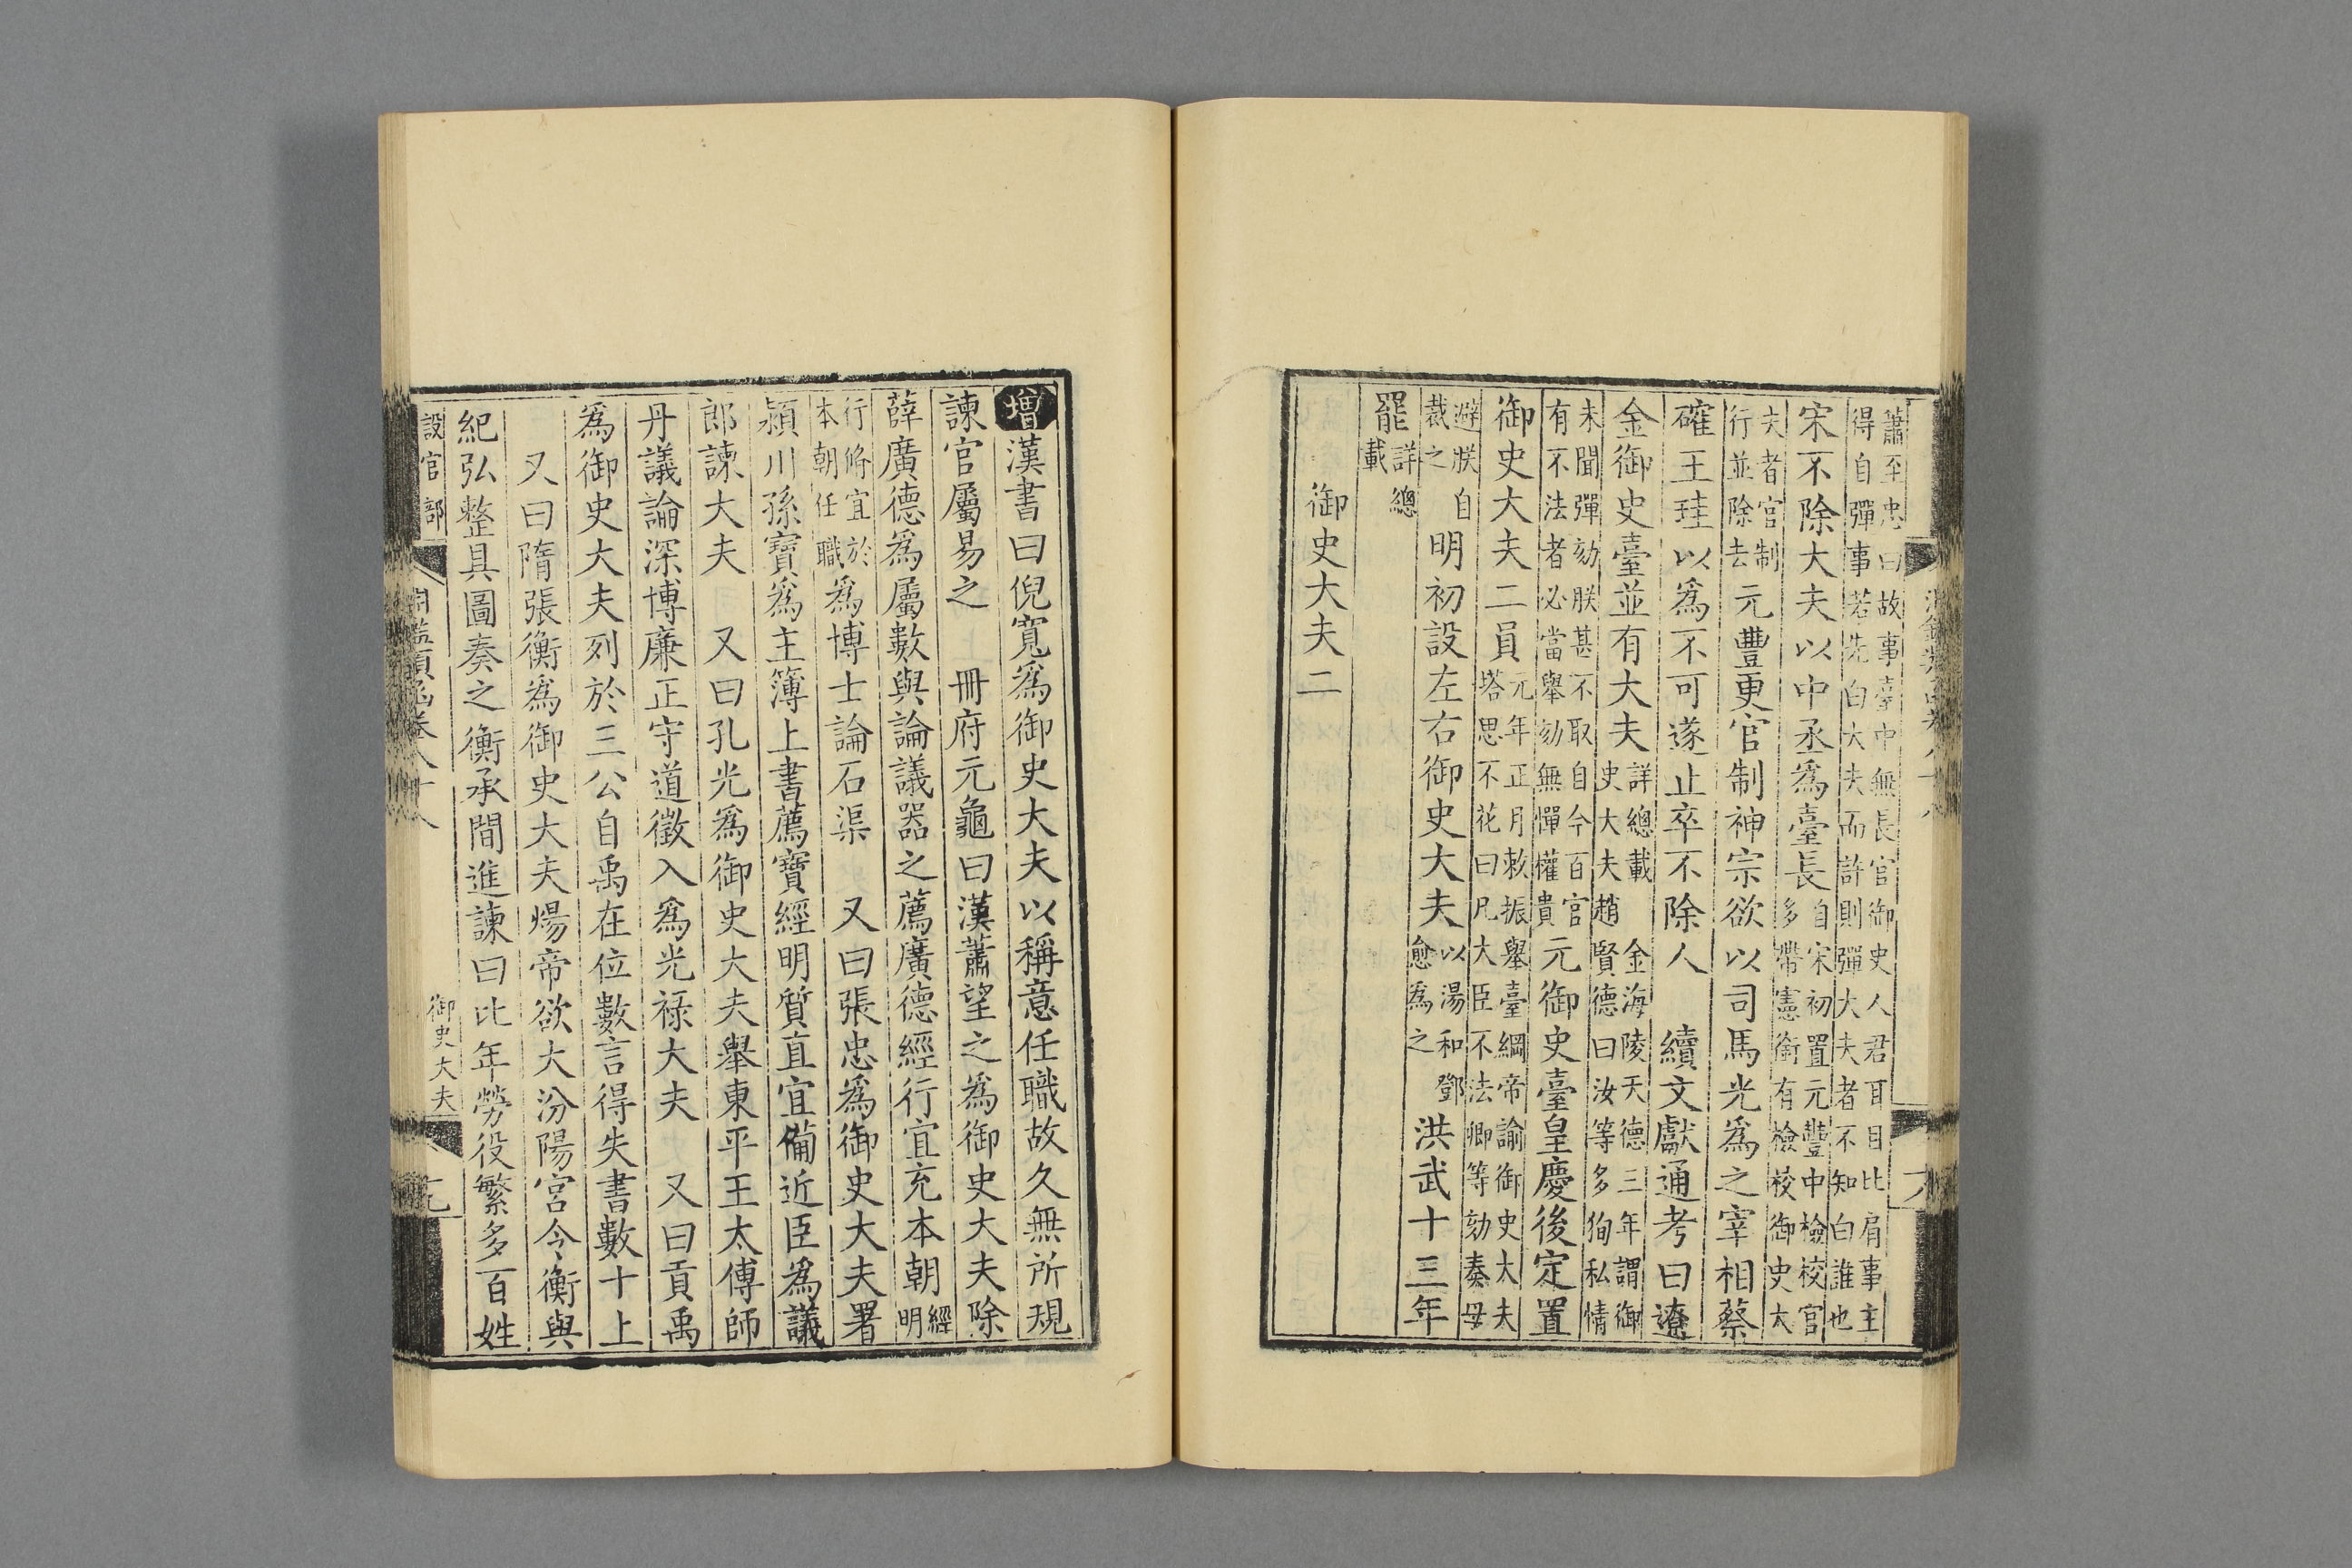 蕭至忠曰故事臺中無長官御史人君耳目比肩事主
得自彈事若先白大夫而許則彈大夫者不知白誰也
宋不除大夫以中丞爲臺長自宋初置元豐中檢校官多帶憲銜有檢校御史大
夫者官制行並除去元豐更官制神宗欲以司馬光爲之宰相蔡
確王珪以爲不可遂止卒不除人 續文獻通考曰遼
金御史臺並有大夫詳總載 金海陵天德三年謂御史大夫趙賢德曰汝等多狥私情
未聞彈劾朕甚不取自今百官有不法者必當舉劾無憚權貴元御史臺皇慶後定置
御史大夫二員元年正月敕振舉臺綱帝諭御史大夫塔思不花曰凡大臣不法卿等劾奏毋
避朕自裁之明初設左右御史大夫以湯和鄧愈爲之洪武十三年
罷詳總載
御史大夫二
增漢書曰倪寬爲御史大夫以稱意任職故久無所規
諫官屬易之 冊府元龜曰漢蕭望之爲御史大夫除
薛廣德爲屬數與論議器之薦廣德經行宜充本朝經明
行脩宜於本朝任職爲博士論石渠 又曰張忠爲御史大夫署
潁川孫寶爲主簿上書薦寶經明質直宜備近臣爲議
郎諫大夫 又曰孔光爲御史大夫舉東平王太傅師
丹議論深博廉正守道徵入爲光祿大夫 又曰貢禹
爲御史大夫列於三公自禹在位數言得失書數十上
又曰隋張衡爲御史大夫煬帝欲大汾陽宮令衡與
紀弘整具圖奏之衡承間進諫曰比年勞役繁多百姓
設官部
淵鑑類函卷八十八
御史大夫